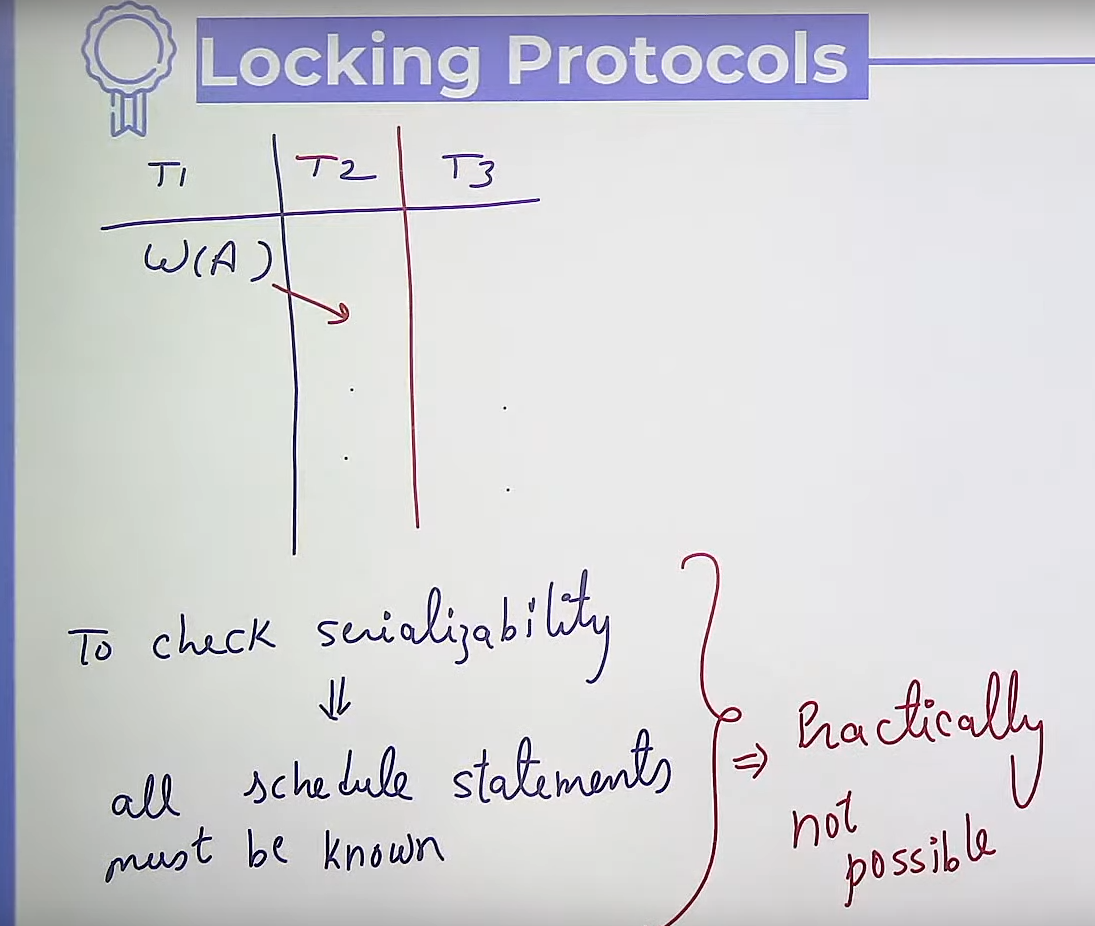 Locking Protocols
T1 T2 T3
W(A)
To check serializability
⇓
all schedule statements
must be known
⇒ Practically
not
possible